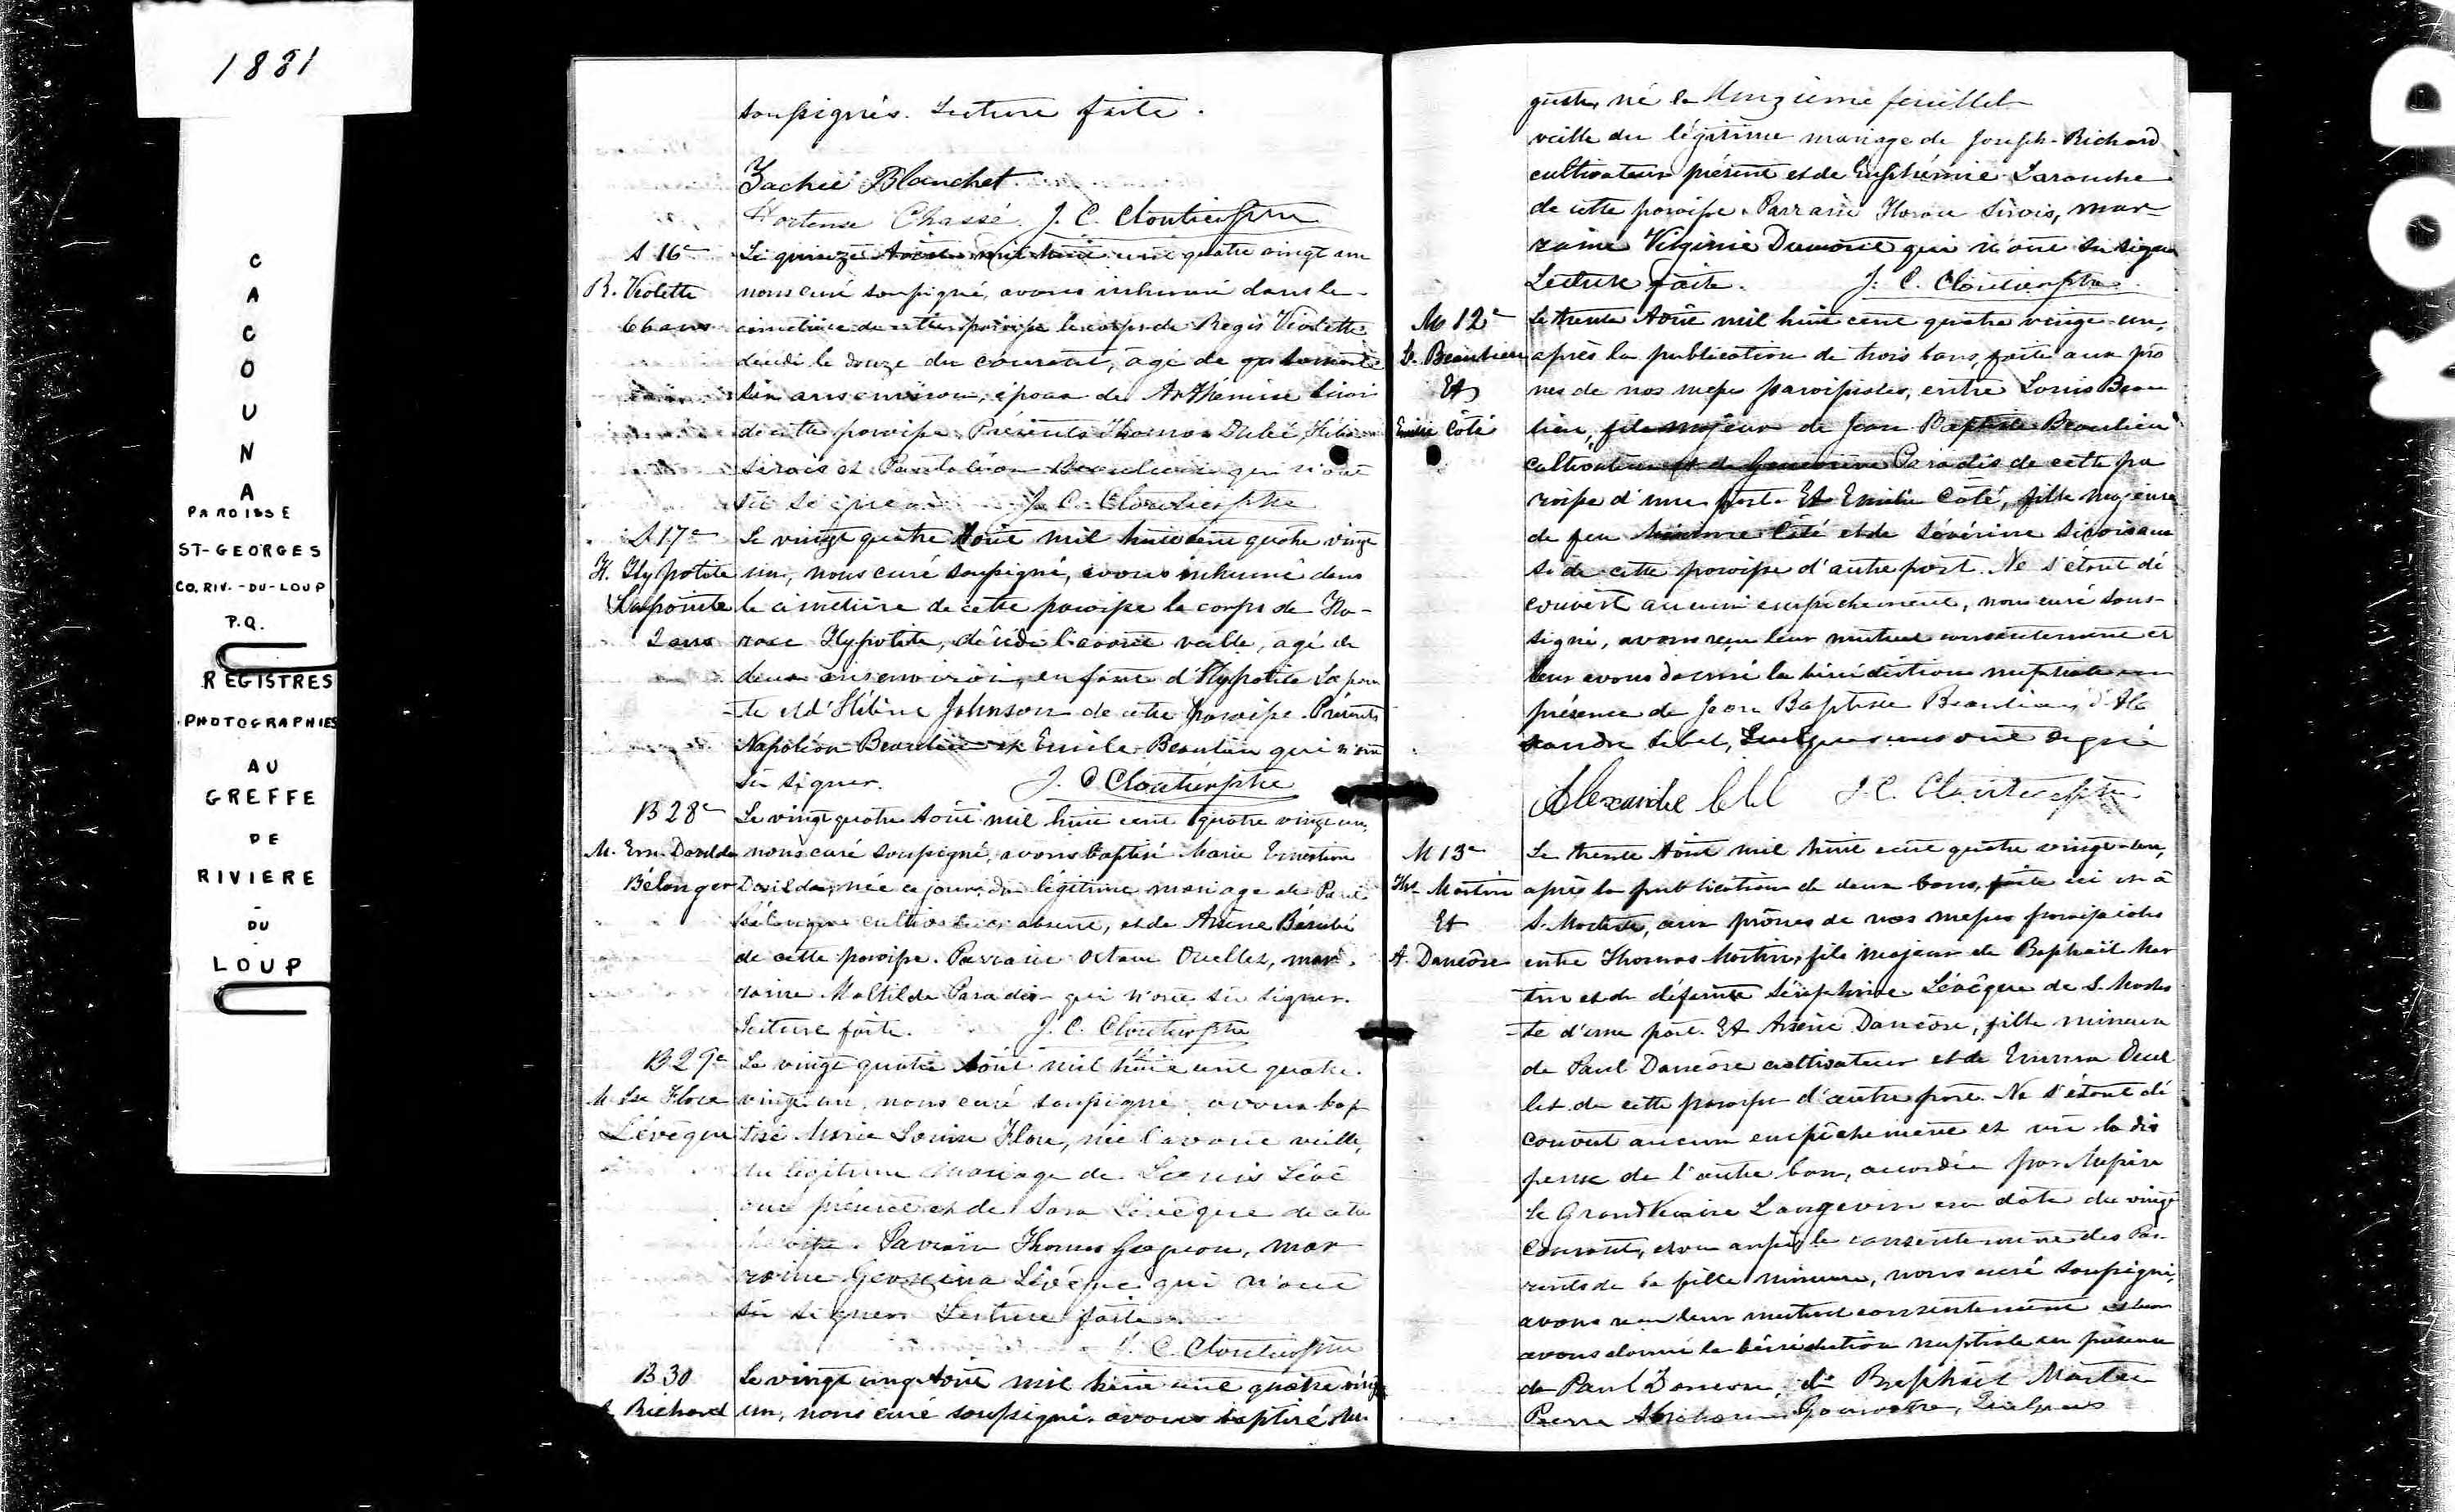 1881
C
A
C
O
U
N
A
PAROISSE
ST-GEORGES
CO. RIV.-DU-LOUP
P.Q.
REGISTRES
PHOTOGRAPHIES
AU
GREFFE
DE
RIVIERE
-
DU
LOUP
soussignés. Lecture faite.
Zachée Blanchet
Hortense Chassé J. C. Cloutier ptre
S 16e Le quinze Août mil huit cent quatre vingt un
R. Violette nous curé soussigné, avons inhumé dans le
66 ans cimetière de cette paroisse le corps de Regis Violette
décédé le douze du courant, âgé de soixante
six ans environ, époux de Arthémise Sirois
de cette paroisse. Présents Thomas Dubé,
Sirois et Pantaléon Beaulieu qui n'ont
su signer J. C. Cloutier ptre
S 17e Le vingt quatre Août mil huit cent quatre vingt
H. Hypolite un, nous curé soussigné, avons inhumé dans
Lapointe le cimetière de cette paroisse le corps de Ho-
2 ans race Hypolite, décédé l'avant veille, agé de
deux ans environ, enfant d'Hypolite Lapoin
-te et d'Hélène Johnson de cette paroisse. Présents
Napoléon Beaulieu et Emile Beaulieu qui n'ont
su signer. J. C. Cloutier ptre
B 28e Le vingt quatre Août mil huit cent quatre vingt un,
M. Ern. Davilda nous curé soussigné, avons baptisé Marie Ernestine
Bélanger Davilda, née ce jour, du légitime mariage de Paul
Bélanger cultivateur absent, et de Arsène Bérubé
de cette paroisse. Parrain Octave Ouellet, mar
raine Mathilde Paradis qui n'ont su signer.
Lecture faite. J. C. Cloutier ptre
B 29e Le vingt quatre Août mil huit cent quatre
M. Lse Flore vingt un, nous curé soussigné, avons bap
Lévêque tisé Marie Louise Flore, née l'avant veille,
du légitime mariage de Louis Lévê
que présent et de Sara Lévêque de cette
paroisse. Parrain Thomas Gagnon, mar
raine Georgina Lévêque qui n'ont
su signer Lecture faite
J. C. Cloutier ptre
B 30 Le vingt cinq Août mil huit cent quatre vingt
Richard un, nous curé soussigné, avons baptisé Au
guste, né la Onzième feuillet
veille du légitime mariage de Joseph Richard
cultivateur présent et de Euphémie Larouche
de cette paroisse. Parrain Horace Sirois, mar
raine Virginie Dumont qui n'ont su signer
Lecture faite. J. C. Cloutier ptre
M 12e Le trente Août mil huit cent quatre vingt-un,
L. Beaulieu après la publication de trois bans, faite aux prô
Et nes de nos messes paroissiales, entre Louis Beau
Emilie Côté lieu, fils majeur de Jean Baptiste Beaulieu
cultivateur et de Geneviève Paradis de cette pa
roisse d'une part. Et Emilie Côté, fille majeure
de feu Côté et de Séverine Sirois aus
si de cette paroisse d'autre part. Ne s'étant dé
couvert aucun empêchement, nous curé sous-
signé, avons reçu leur mutuel consentement et
leur avons donné la bénédiction nuptiale en
présence de Jean Baptiste Beaulieu, d'Ale
xandre Lebel, Quelques uns ont signé
Alexandre Lebel J. C. Cloutier ptre
M 13e Le trente Août mil huit cent quatre vingt-un,
Ths Martin après la publication de deux bans, faite ici et à
Et S. Modeste, aux prônes de nos messes paroissiales
A. Dancôse entre Thomas Martin, fils majeur de Raphaël Mar
tin et de défunte Séraphine Lévêque de S. Modes
-te d'une part. Et Arsène Dancôse, fille mineure
de Paul Dancôse cultivateur et de Emma Ouel
let de cette paroisse d'autre part. Ne s'étant dé
couvert aucun empêchement et vu la dis
pense de l'autre ban, accordée par Messire
le Grand Vicaire Langevin en date du vingt
courant, et vu aussi le consentement des Pa-
rents de la fille mineure, nous curé soussigné,
avons reçu leur mutuel consentement et leur
avons donné la bénédiction nuptiale en présence
de Paul Dancôse, de Raphaël Martin
Pierre Abraham Quelques